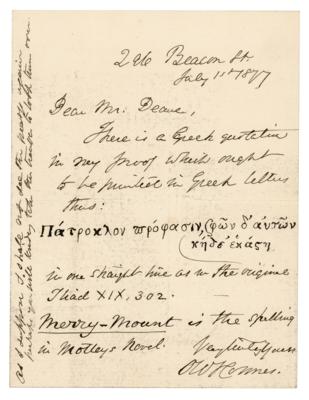 296 Beacon St.
July 11th 1877
Dear Mr. Deane,
There is a Greek quotation
in my proof which ought
to be printed in Greek letters
thus:
Πάτροκλον πρόφασιν, σφῶν δ' αὐτῶν
κήδε' ἑκάστη
in one straight line as in the original
Iliad XIX, 302.
Merry-Mount is the spelling
in Motley's Novel.
Very truly Yours
OW Holmes.
As I suppose I shall not see the proofs again
perhaps you will kindly take the trouble to look them over